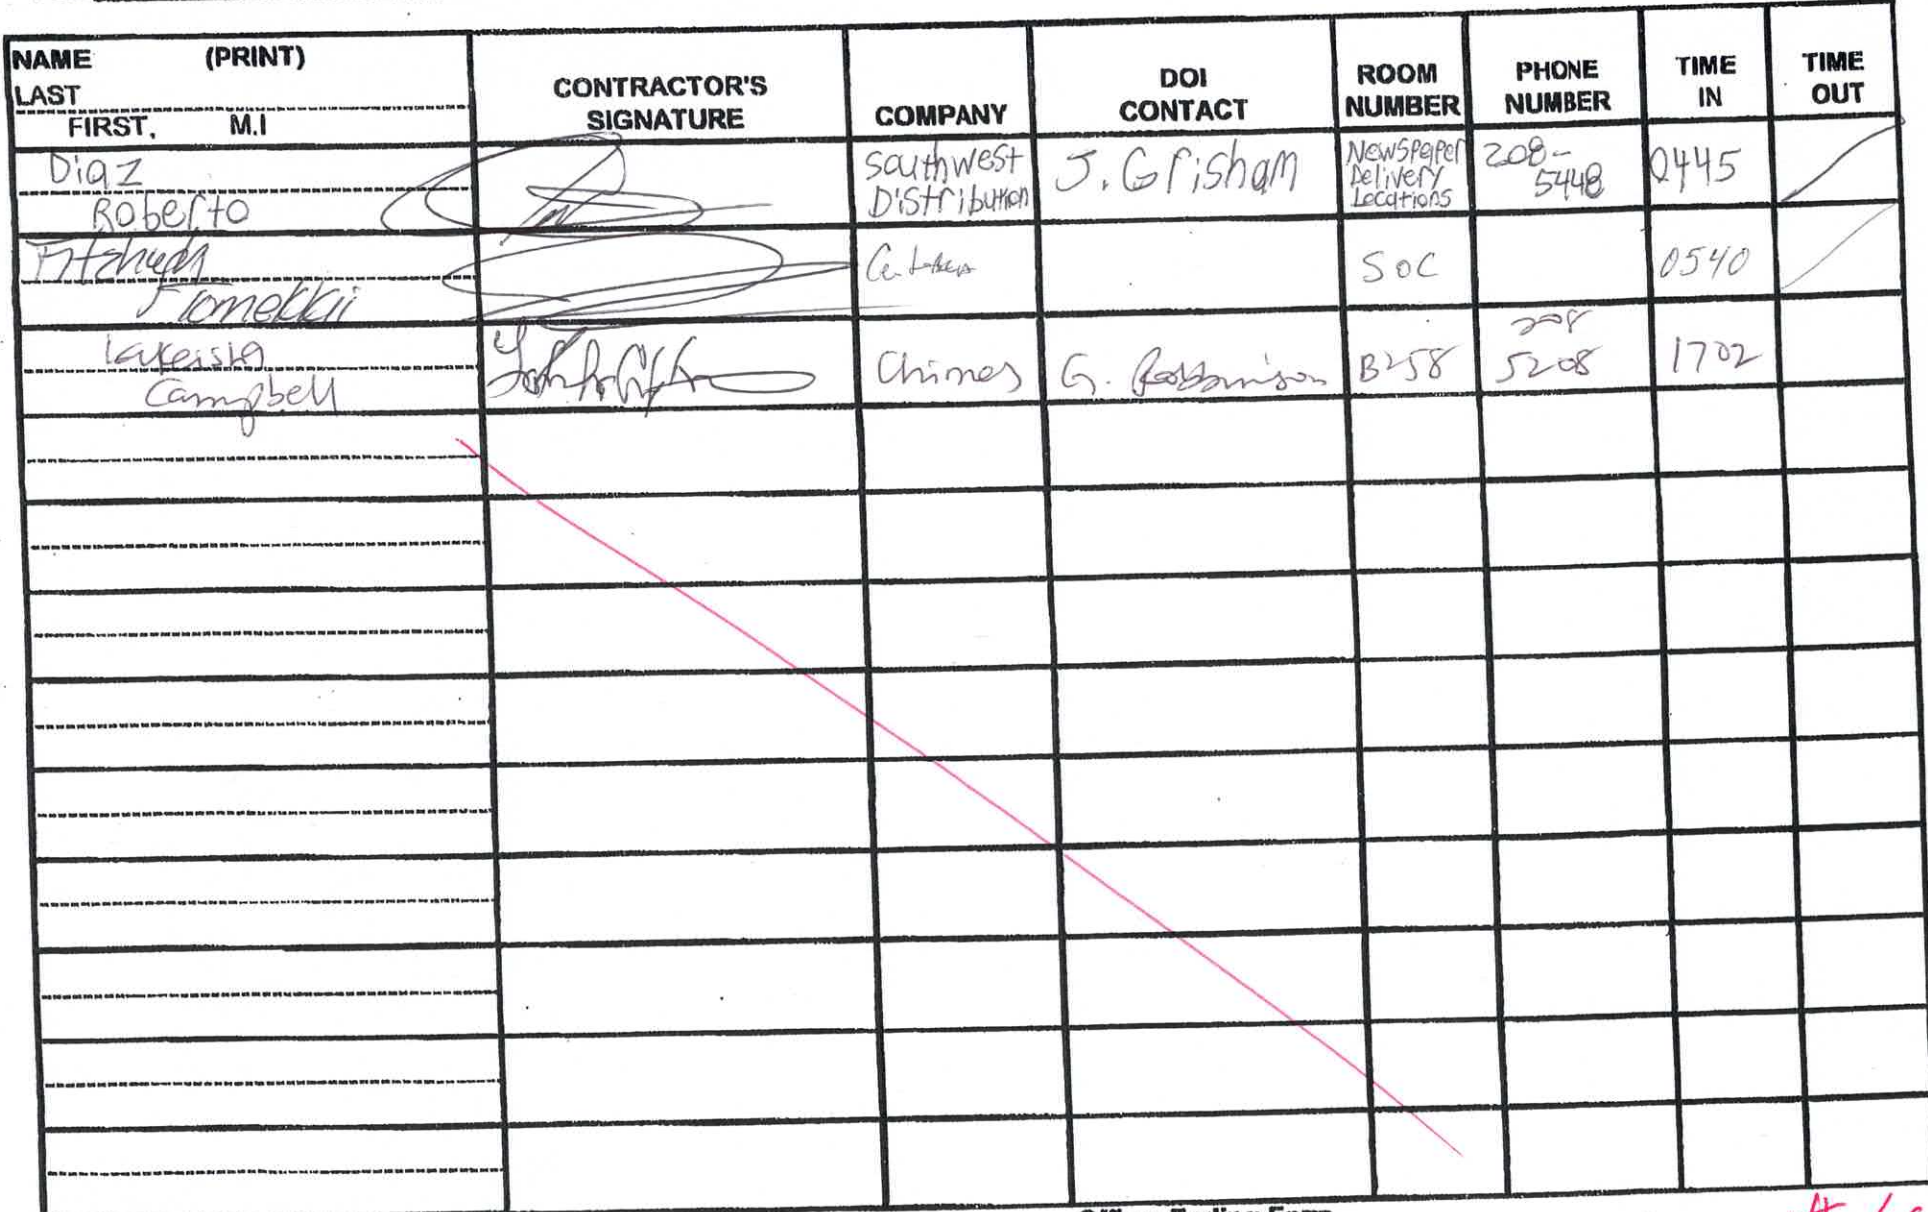 NAME (PRINT)
LAST
FIRST, M.I
CONTRACTOR'S
SIGNATURE
COMPANY
DOI
CONTACT
ROOM
NUMBER
PHONE
NUMBER
TIME
IN
TIME
OUT
Diaz
Roberto
Southwest
Distribution
J. Grisham
Newspaper
Delivery
Locations
208-
5448
0445
Fitzhugh
Tomekkii
SOC
0540
Lakeisha
Campbell
Chimes
G. Robbinson
B258
208
5208
1702